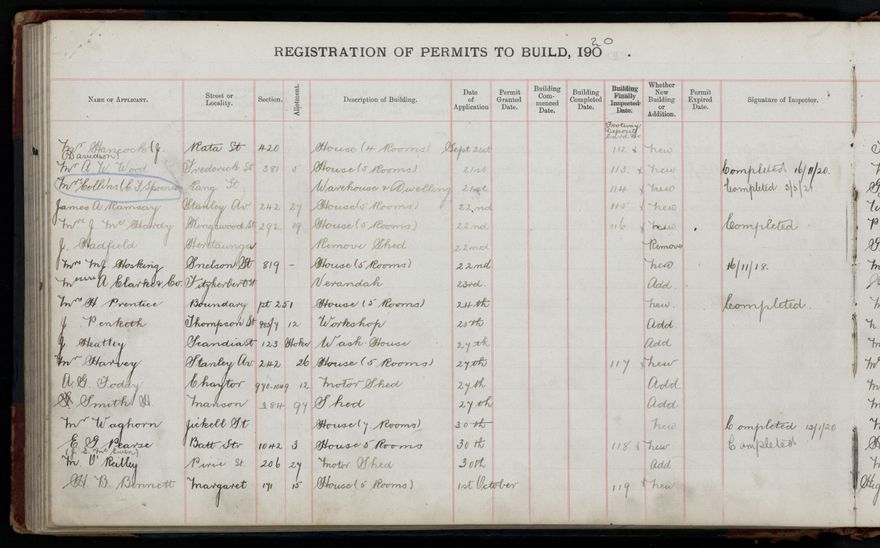 REGISTRATION OF PERMITS TO BUILD, 190 20 .
NAME OF APPLICANT. Street or Locality. Section. Allotment. Description of Building. Date of Application Permit Granted Date. Building Commenced Date. Building Completed Date. Building Finally Inspected Date. Whether New Building or Addition. Permit Expired Date. Signature of Inspector.
Footway Deposit
Mr Hancock (J. Kata St 420 House (4 Rooms) Sept 21st 112 New
Davidson)
Mr A W Wood Frederick St 381 5 House (5 Rooms) 21st 113 New Completed 16/11/20.
Mr Collins (C F Spooner Rang St Warehouse & Dwelling 21st 114 New Completed 3/5/21
James A Ramsay Stanley Av 242 27 House (5 Rooms) 22nd 115 New
Mrs J Mc Hardy Ringwood St 292 19 House (5 Rooms) 22nd 116 New Completed
J. Hadfield Heretaunga Remove Shed 22nd Remove
Mrs MJ Hosking Snelson St 819 - House (5 Rooms) 22nd New 16/11/18.
Messrs A Clarke & Co. Fitzherbert St Verandah 23rd. Add.
Mrs H Prentice Boundary pt 251 House (5 Rooms) 24th New. Completed.
J. Penketh Thompson St 12 Workshop 25th Add.
J Heatley Scandia St 123 Hoko Wash House 27th Add
Mr Harvey Stanley Av 242 26 House (5 Rooms) 27th 117 New
A. G. Toddy Chaytor 970-1049 12 Motor Shed 27th Add
Smith H Manson 384 97 Shed 27th Add.
Mr Waghorn Jickell St House (7 Rooms) 30th New Completed 13/1/20
E. G Pearse Batt Str 1042 3 House 5 Rooms 30th 118 New Completed
(J. S. McEwen)
M. O'Reilly Pirie St 206 27 Motor Shed 30th Add
H B Bennett Margaret 171 15 House (5 Rooms) 1st October 119 New